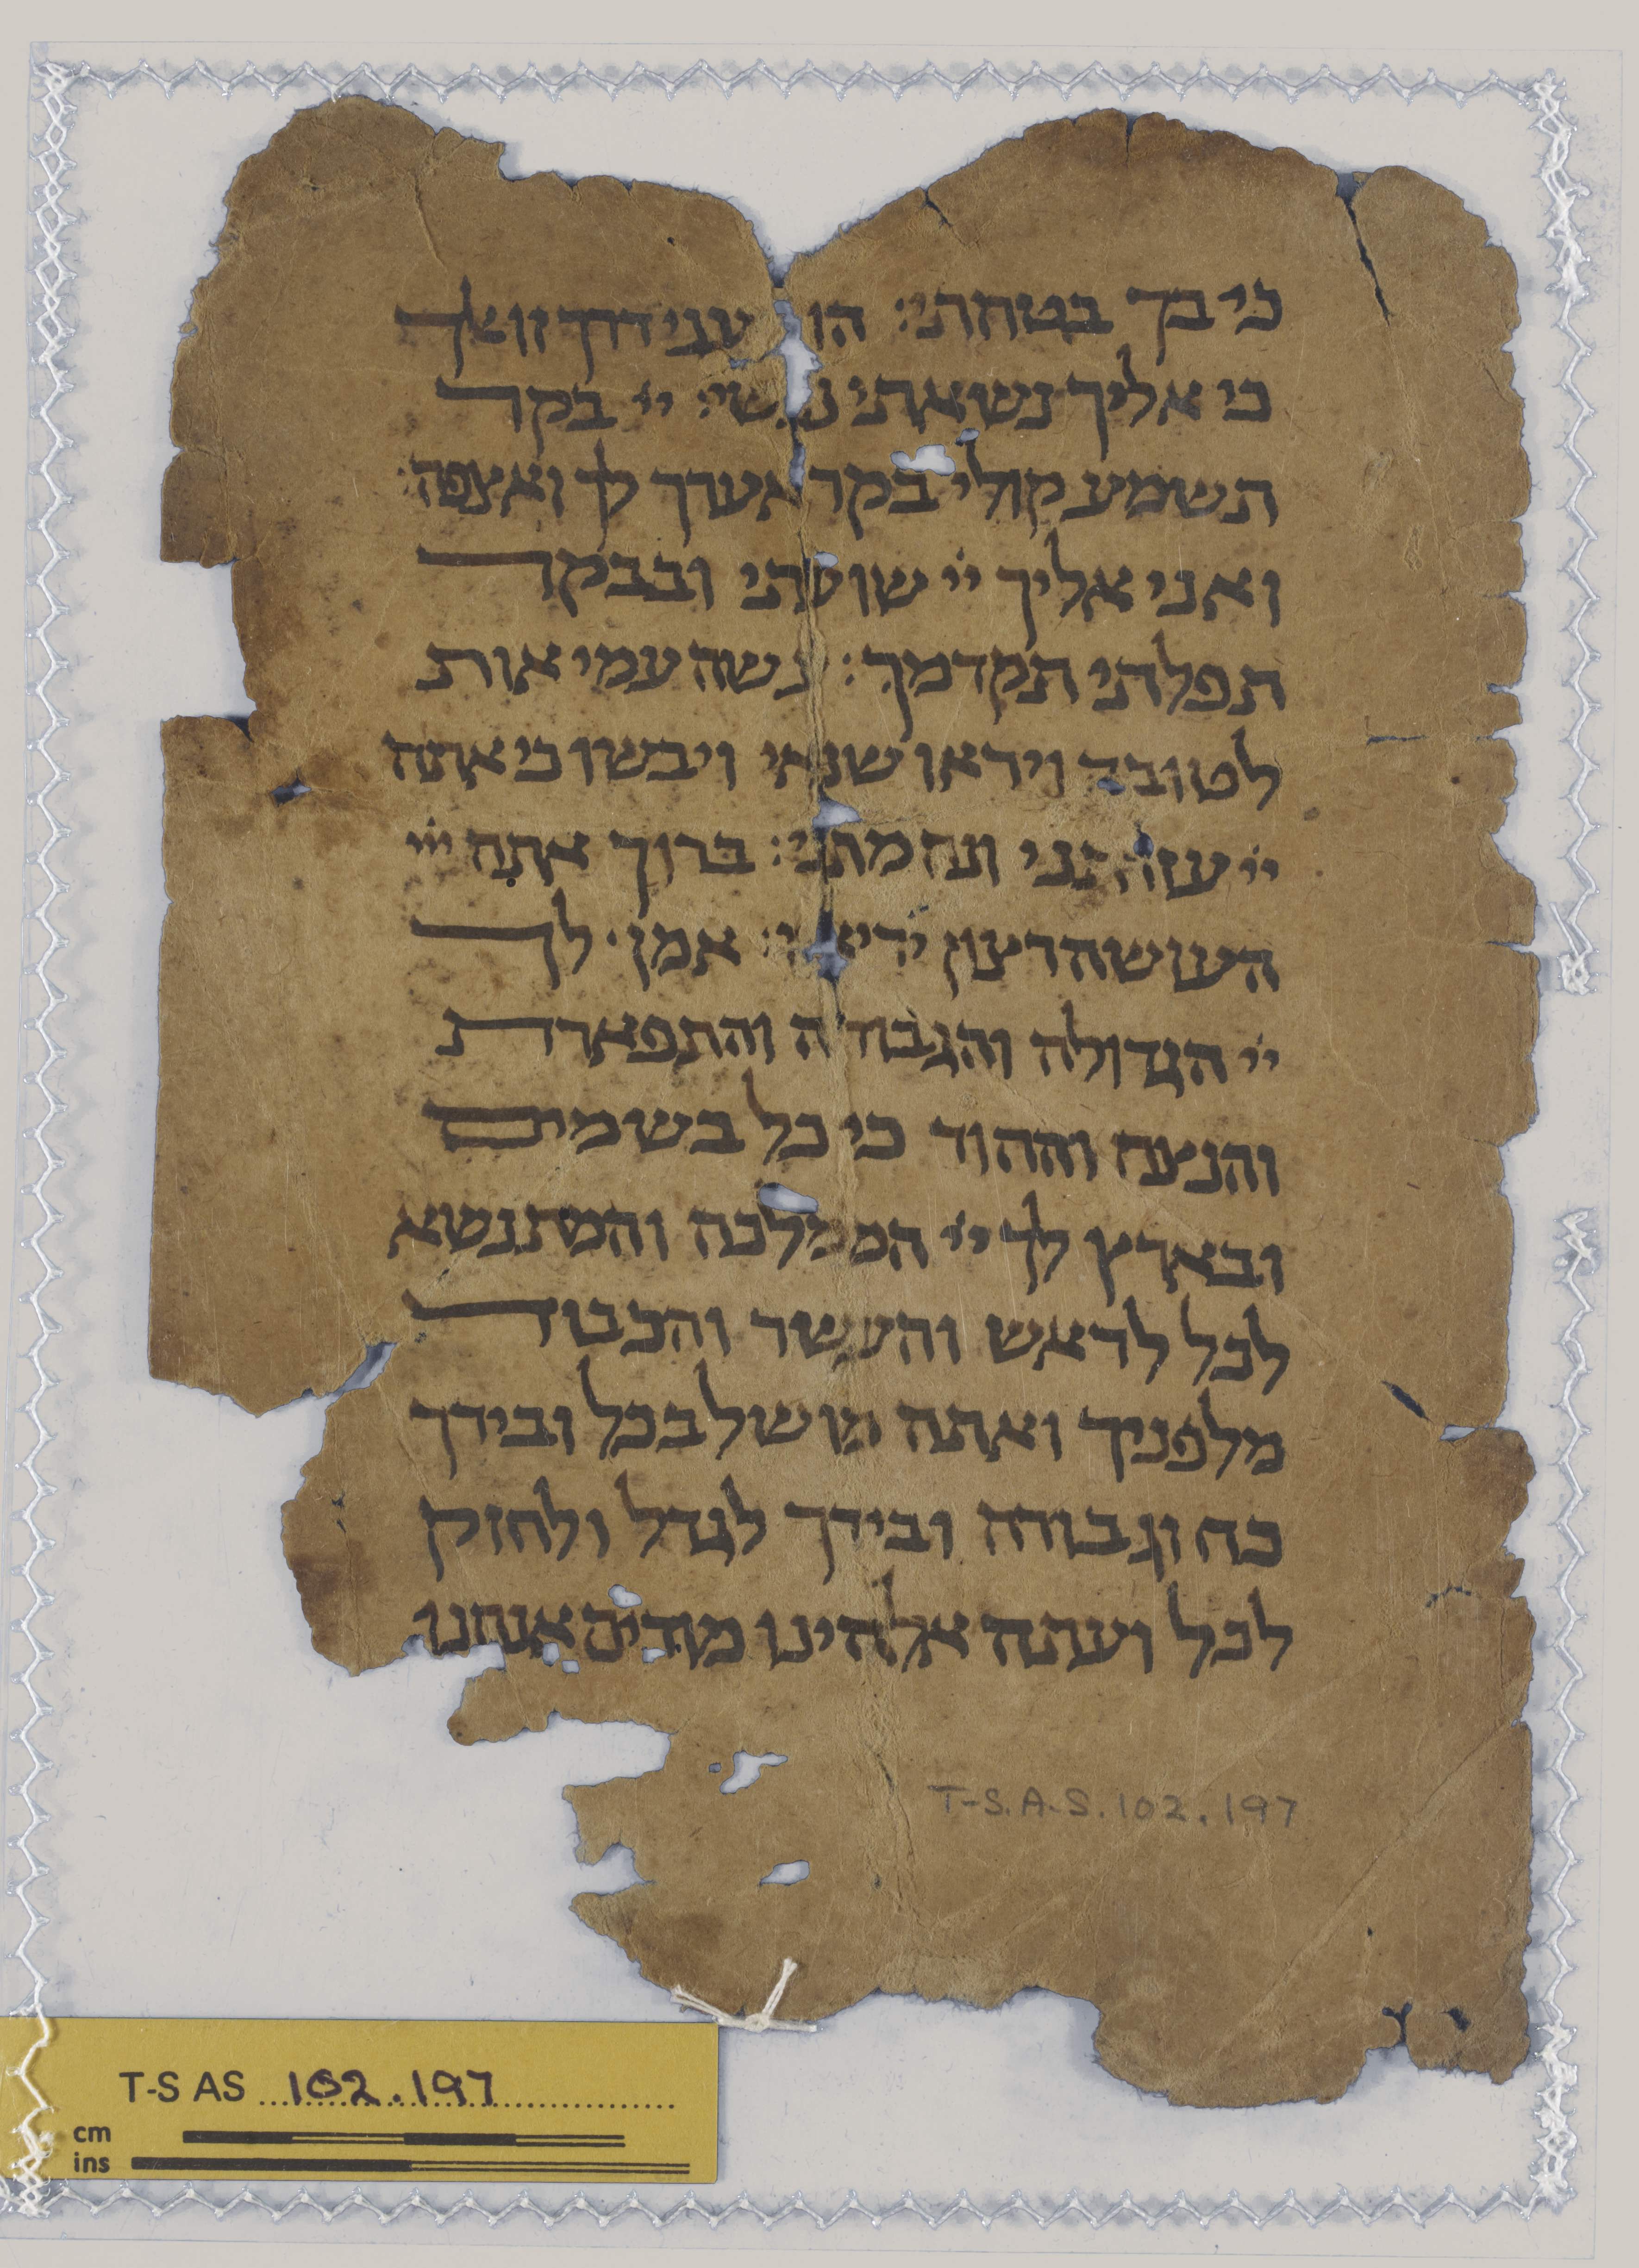 כי בך בטחתי: הוד עני דרך זו אלך
כי אליך נשאתי נפשי: יי בקר
תשמע קולי בקר אערך לך ואצפה:
ואני אליך יי שועתי ובבקר
תפלתי תקדמך: עשה עמי אות
לטובה ויראו שנאי ויבשו כי אתה
יי עזרתני ונחמתני: ברוך אתה ייי
העושה רצון יריאיו: אמן: לך
יי הגדולה והגבורה והתפארת
והנצח וההוד כי כל בשמים
ובארץ לך יי הממלכה והמתנשא
לכל לראש והעשר והכבוד
מלפניך ואתה מושל בכל ובידך
כח וגבורה ובידך לגדל ולחזק
לכל ועתה אלהינו מודים אנחנו
T-S.A.S.102.197
T-S AS 102.197
cm
ins